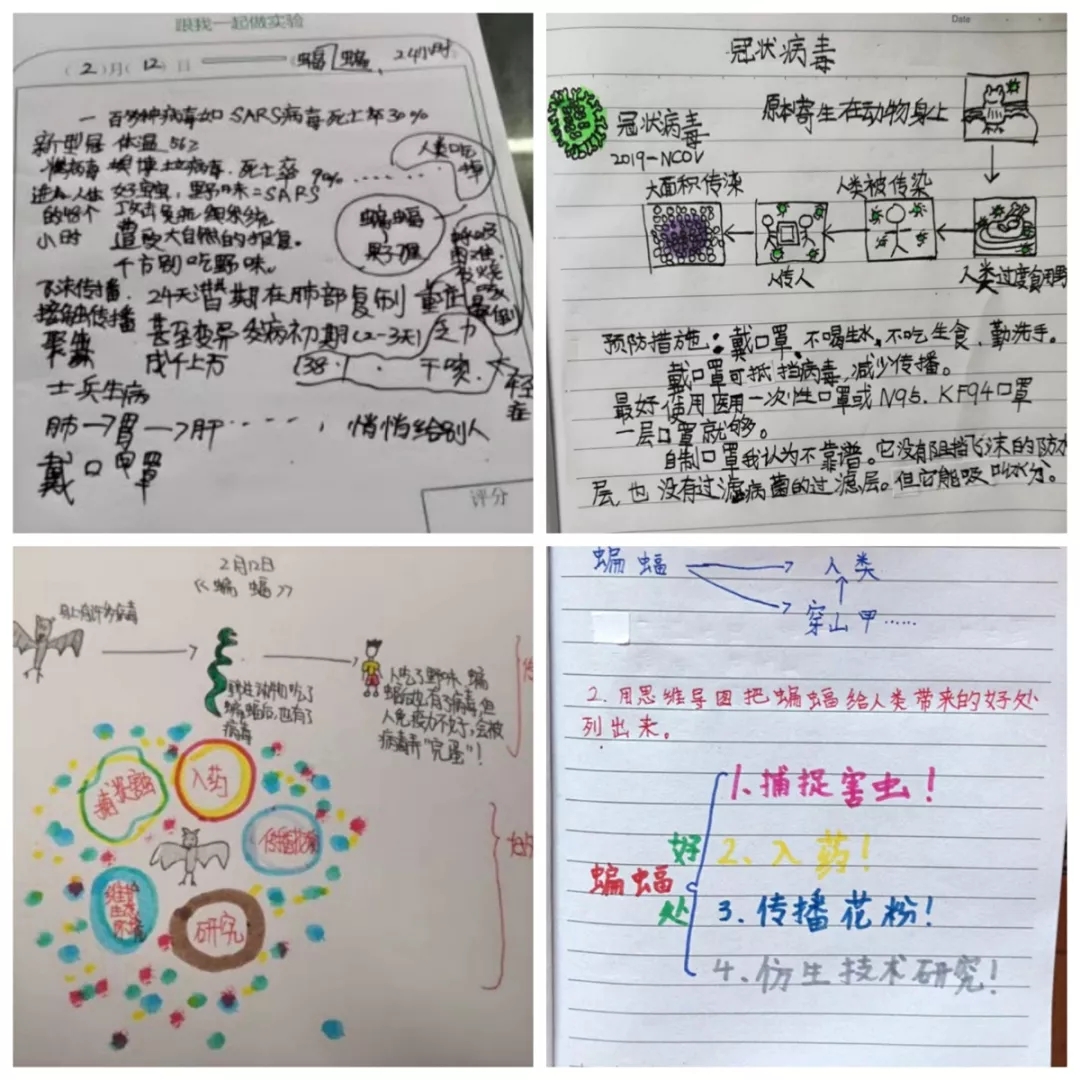 跟我一起做实验
(2)月(12)日 蝙蝠 24小时
一百多种病毒如SARS病毒死亡率30%
新型冠 体温 56
状病毒 埃博拉病毒.死亡率 90%……
进入人体 野味=SARS
的48个 攻击免疫细系统
小时 遭受大自然的报复。
千万别吃野味。
人类吃
蝙蝠
果子狸
呼吸
困难
发烧
飞沫传播.
接触传播
聚集
24天潜期在肺部复制 重症
甚至变异 发病初期(2-3天)乏力
成千上万 (38. 干咳.
轻症
士兵生病
肺→胃→肝……,悄悄给别人
戴口罩
评分
Date
冠状病毒
冠状病毒
2019-NCOV
原本寄生在动物身上
大面积传染
人类被传染
人传人
人类过度食用野
预防措施:戴口罩、不喝生水、不吃生食、勤洗手。
戴口罩可抵挡病毒,减少传播。
最好使用医用一次性口罩或N95、KF94口罩
一层口罩就够。
自制口罩我认为不靠谱。它没有阻挡飞沫的防水
层,也没有过滤病菌的过滤层。但它能吸水分。
2月12日
《蝙蝠》
身上有许多病毒
野生动物吃了
蝙蝠后,也有了
病毒
人吃了野味、蝙
蝠后也有了病毒,但
人免疫力不好,会被
病毒弄"完蛋"!
入药
传播花粉
维护
生态
环境
研究
蝙蝠
人类
穿山甲……
2.用思维导图把蝙蝠给人类带来的好处
列出来。
蝙蝠
好
处
1.捕捉害虫!
2.入药!
3.传播花粉!
4.仿生技术研究!